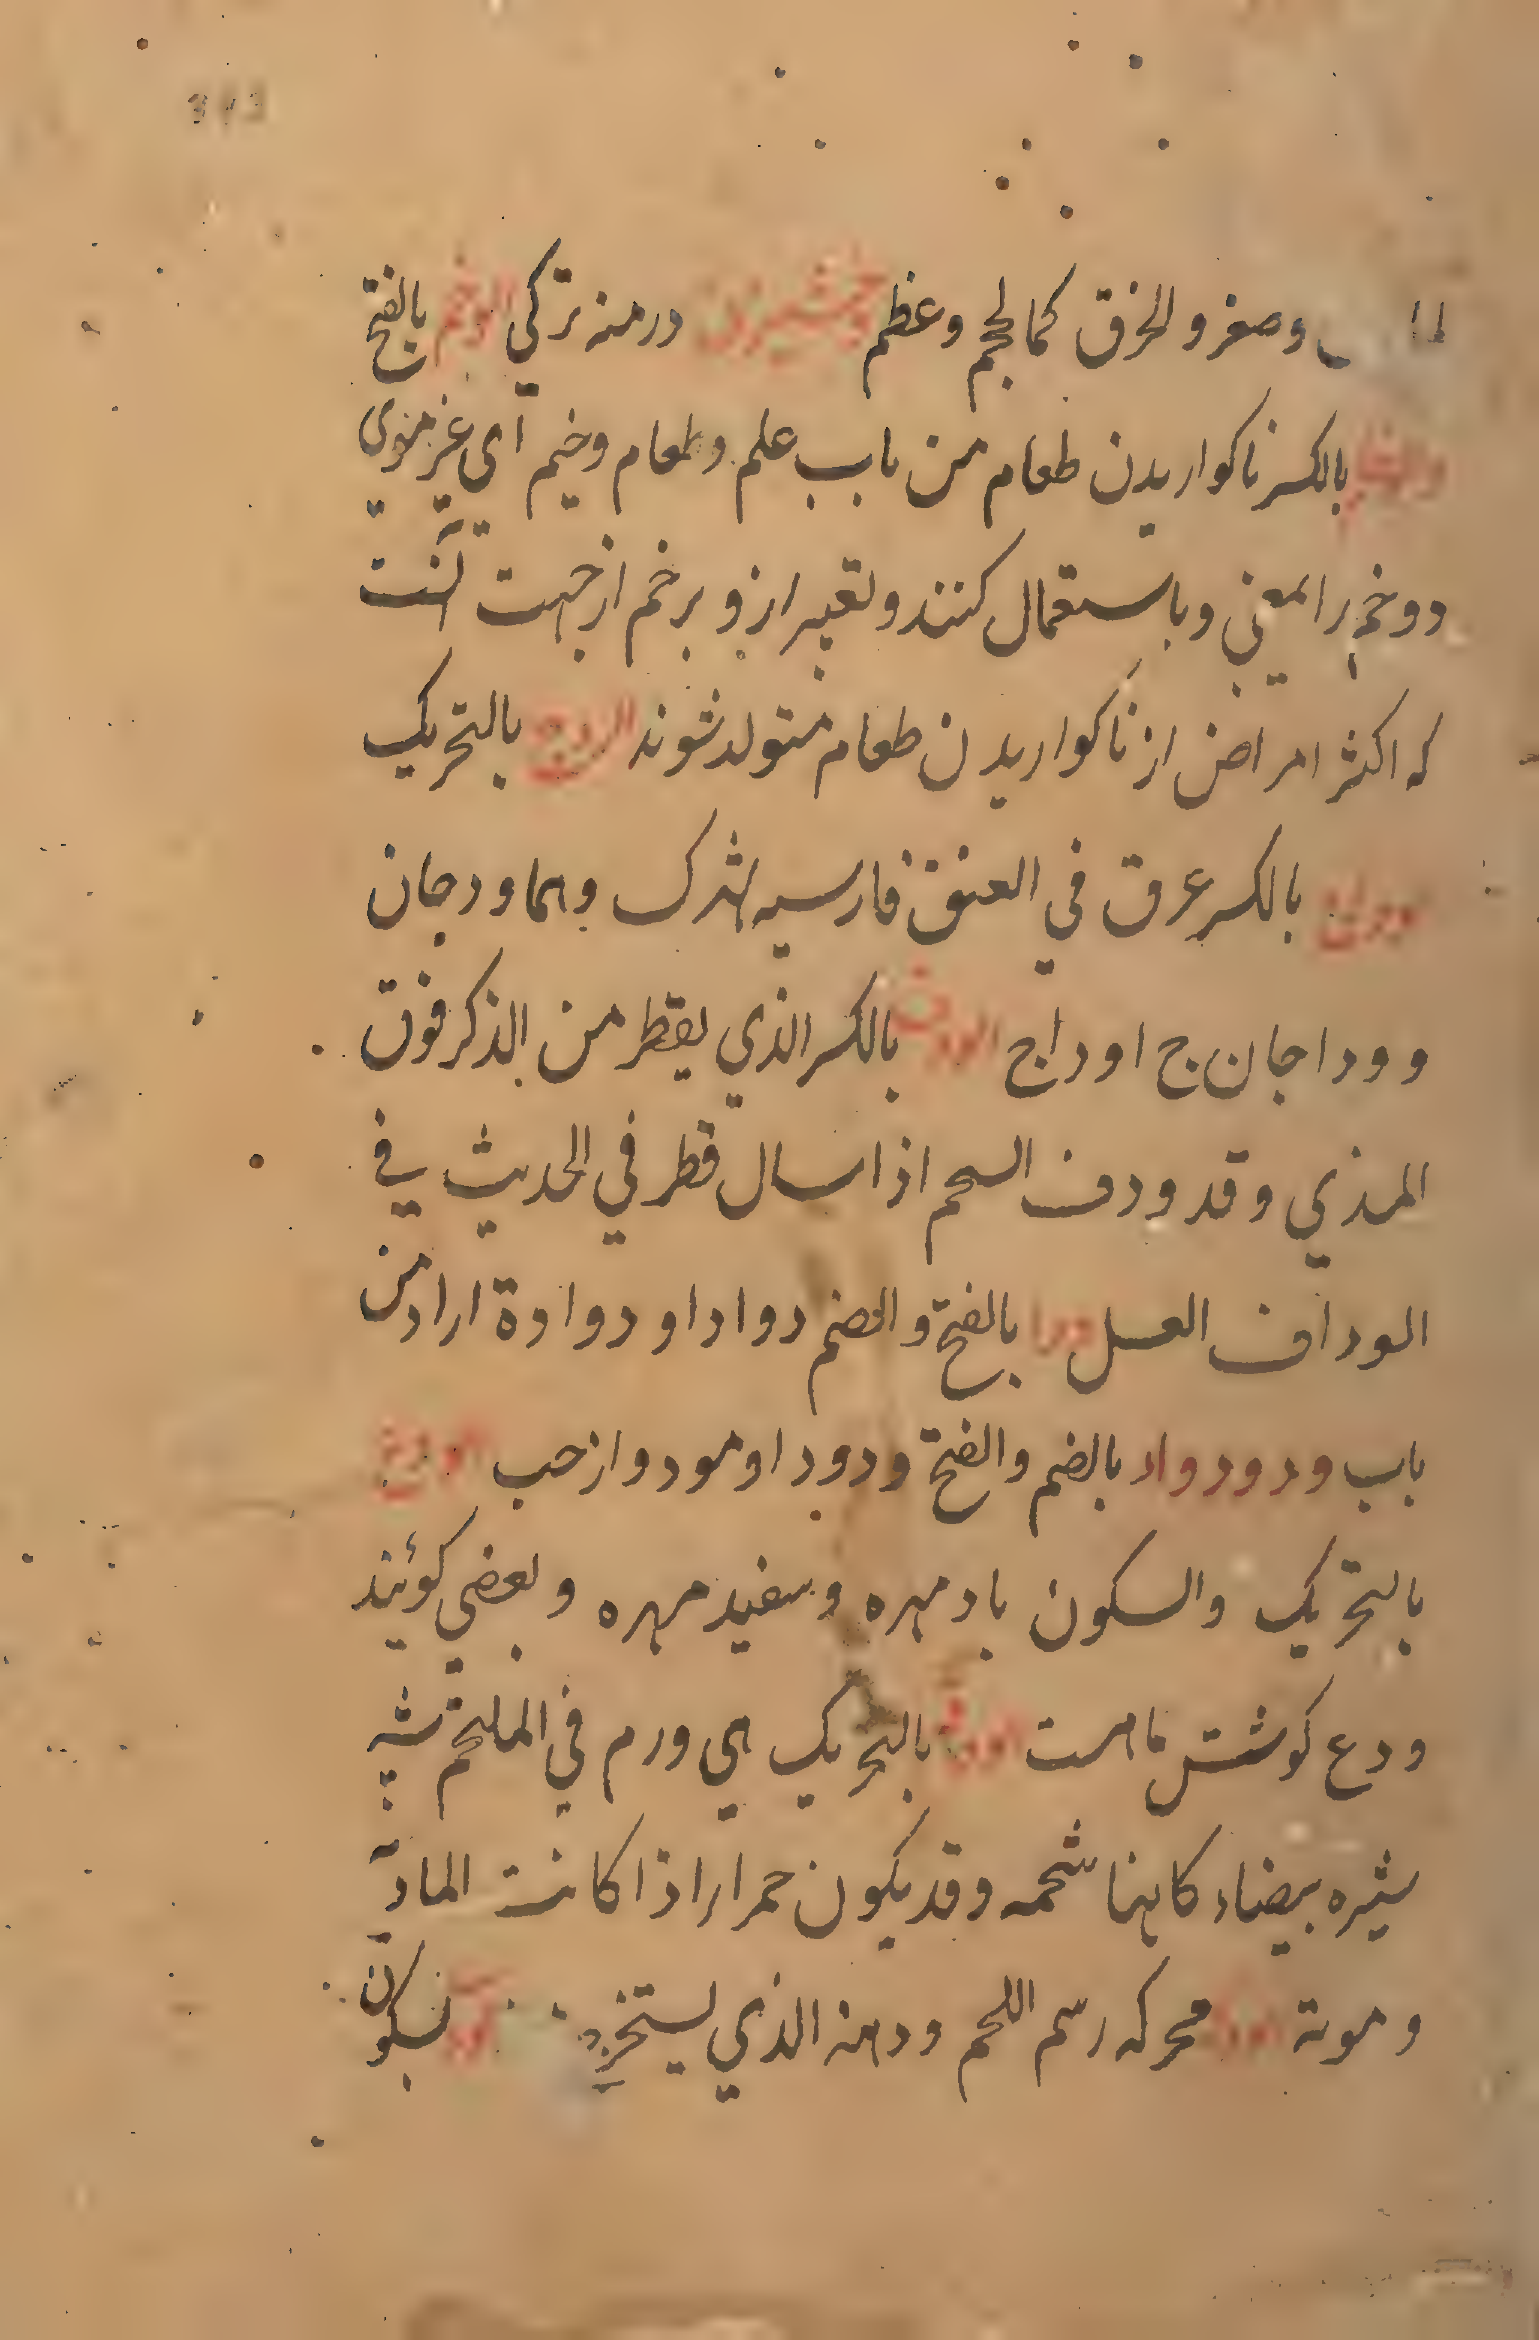 وصغر والخرق كمالحجم وعظم وخشيزك درمنه تركي الوخم بالفتح
بالكسر ناكواريدن طعام من باب علم وطعام وخيم آي غير موي
ووخم را بمعني وبا ستعمال كنند وتعبير از وبا بوخم از جهت آنست
كه اكثر امراض از ناكواريدن طعام متولد شوند الودج بالتحريك
ووداج بالكسر عرق في العنق فارسيه شهرك وهما ودجان
و وداجان ج اوداج الودف بالكسر الذي يقطر من الذكر فوق
المذي وقد ودف السحم اذا سال قطر في الحديث في
الوداف الغسل ودا بالفتح والضم دوادا و دوادة اراد من
باب ود ودواد بالضم والفتح ودودا ومودوا زحب ودع
بالتحريك والسكون بادمهره وسفيد مهره وبعضي كوئيند
ودع كوشش ماهست ودقه بالتحريك هي ورم في الملتحم شبه
بثره بيضاء كانها شحمه وقد يكون حمرارا ذا كانت المادة
وموية ودك محركه رسم اللحم ودهنه الذي يستخرج بسكون